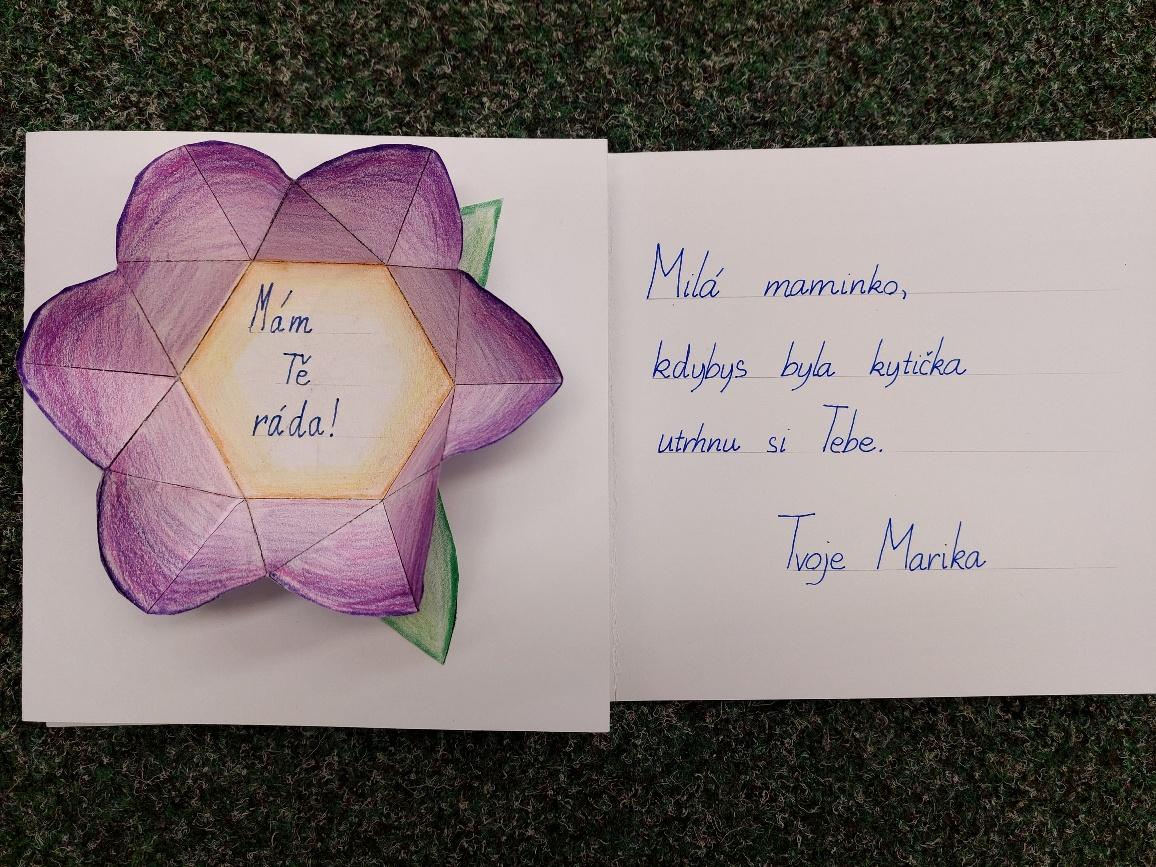 Mám
Tě
ráda!
Milá maminko,
kdybys byla kytička
utrhnu si Tebe.
Tvoje Marika